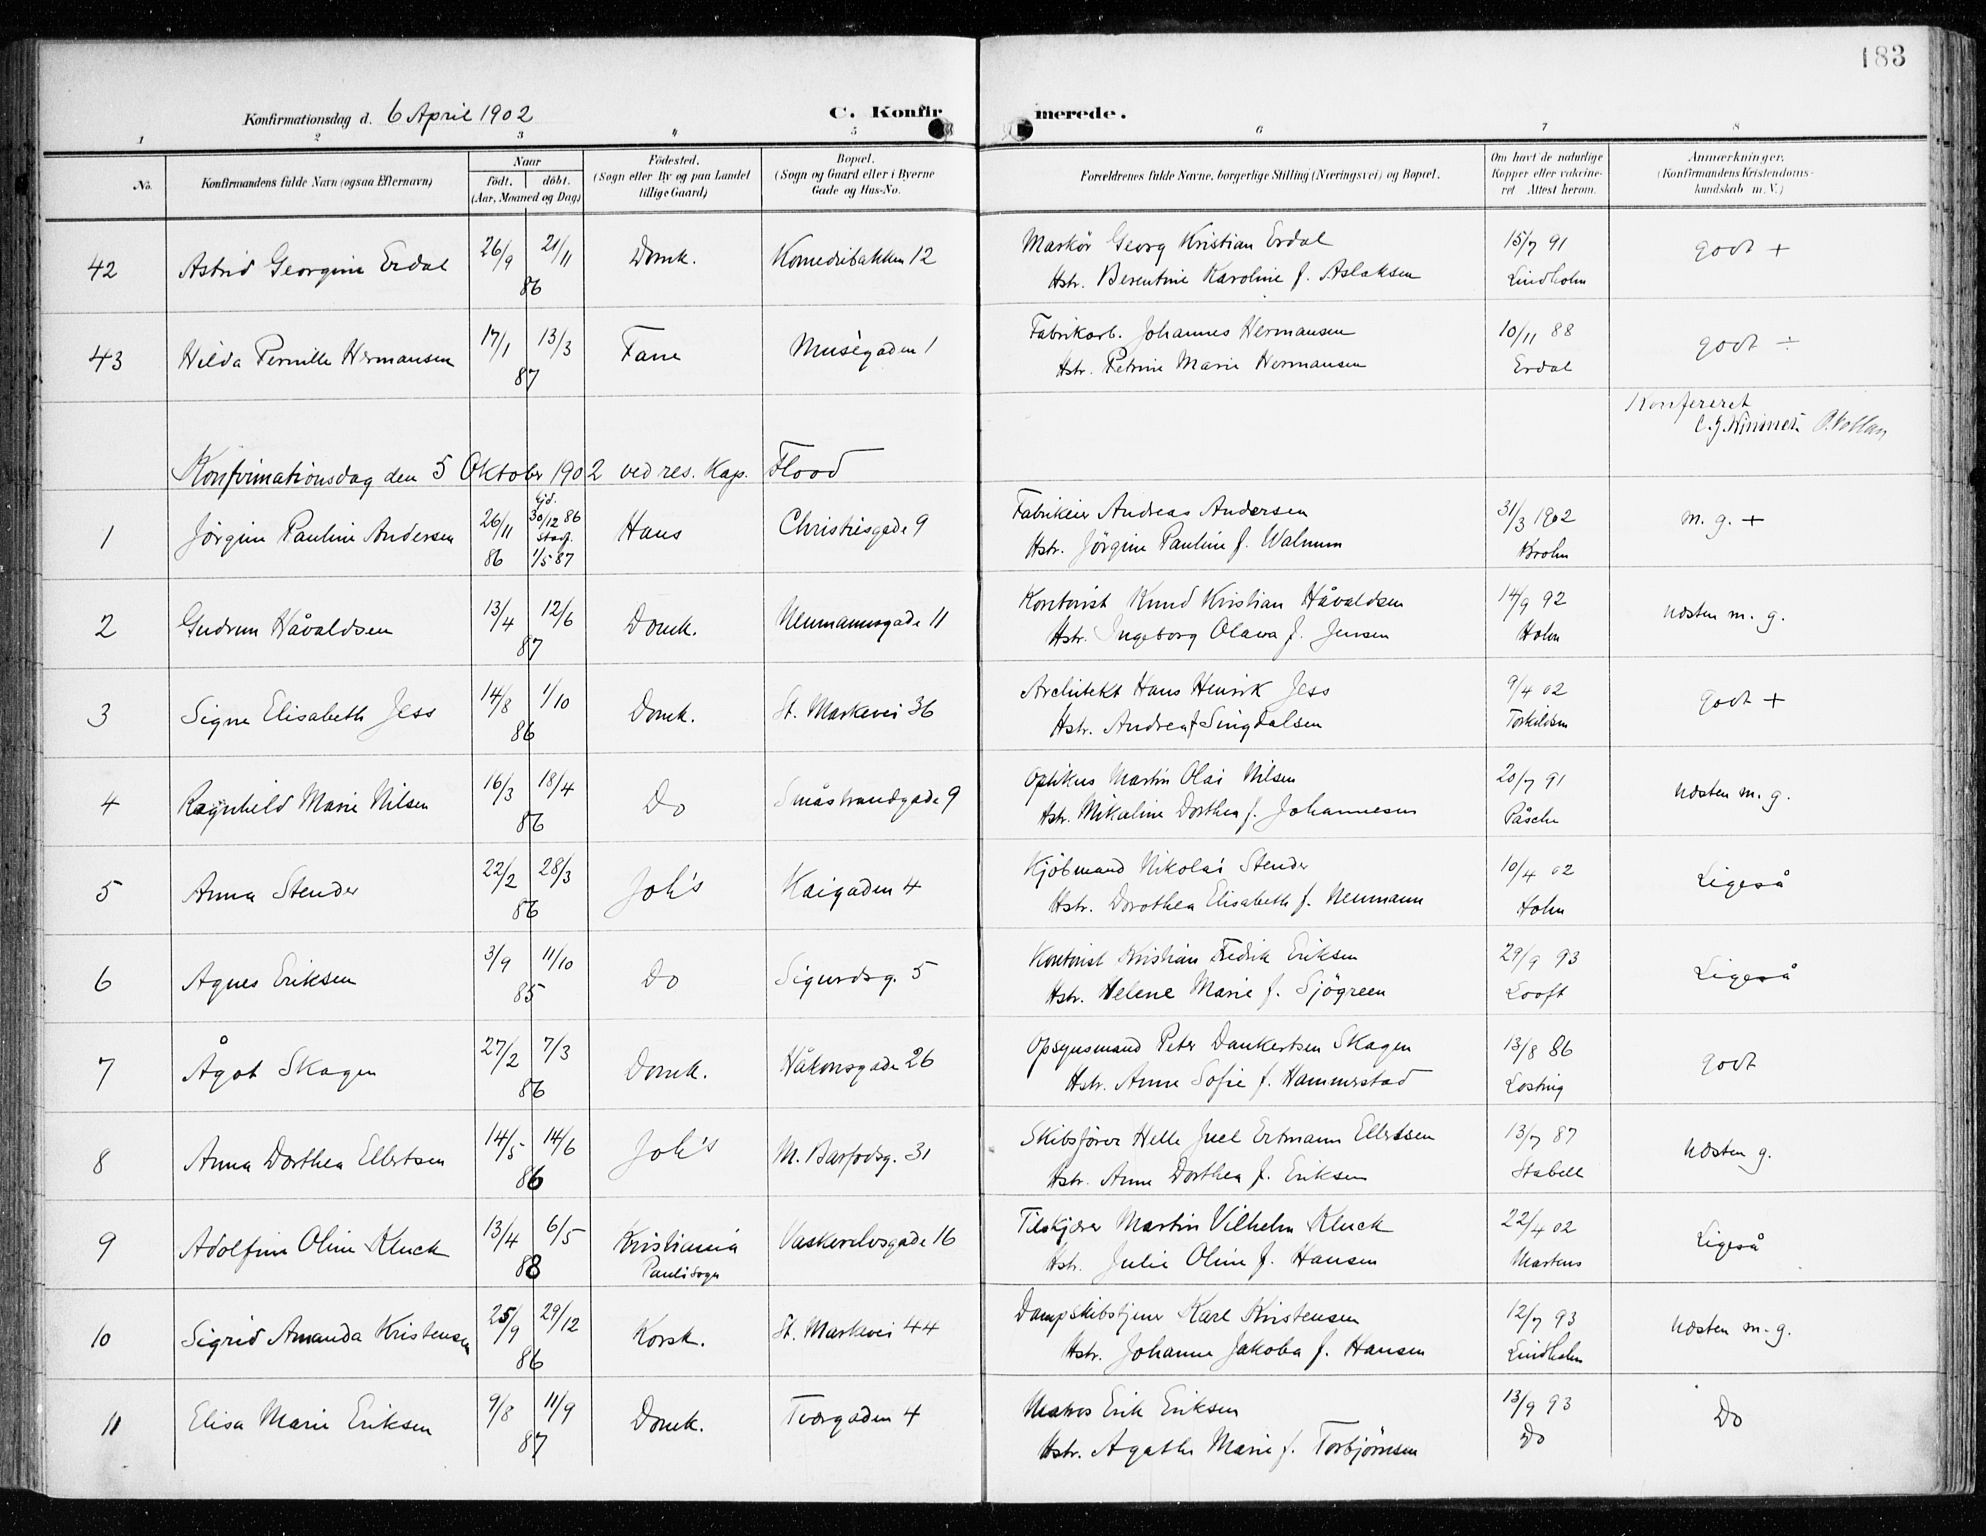 183
Konfirmationsdag d. 6 April 1902 C. Konfir merede.
1 2 3 " 5 6 7 8
No. Konfirmandens fulde Navn (ogsaa Efternavn) Naar födt. döbt. (Aar, Maaned og Dag) Födested. (Sogn eller By og paa Landet tillige Gaard) Bopæl. (Sogn og Gaard eller i Byerne Gade og Hus-No. Forældrenes fulde Navne, borgerlige Stilling (Næringsvei) og Bopæl. Om havt de naturlige Kopper eller vakcineret Attest herom. Anmærkninger. (Konfirmandens Kristendomskundskab m. V.)
42 Astrid Georgine Erdal 26/9 21/11 86 Domk. Komediebakken 12 Markör Georg Kristian Erdal 15/7 91 godt +
Hstr. Berentine Karoline f. Aslaksen Lindholm
43 Hilda Pernille Hermansen 17/1 13/3 87 Fane Muségaden 1 Fabrikarb. Johannes Hermansen 10/11 88 godt ÷
Hstr. Petrine Marie Hermansen Erdal
Konfereret
Konfirmationsdag den 5 Oktober 1902 ved res. Kap. Flood
1 Jörgine Pauline Andersen 26/11 86 hjd. 30/12 86 stadf. 1/5 87 Haus Christiesgade 9 Fabrikeier Andreas Andersen 31/3 1902 m. g. +
Hstr. Jörgine Pauline f. Walmum Krohn
2 Gudrun Håvaldsen 13/4 12/6 87 Domk. Neumannsgade 11 Kontorist Knud Kristian Håvaldsen 14/9 92 næsten m. g.
Hstr. Ingeborg Olava f. Jensen Holm
3 Signe Elisabeth Jess 14/8 1/10 86 Domk. St. Markevei 36 Architekt Hans Henrik Jess 9/4 02 godt +
Hstr. Andrea f Singdalsen Torkildsen
4 Ragnhild Marie Nilsen 16/3 18/4 86 Do Småstrandgade 9 Optikus Martin Olai Nilsen 20/7 91 næsten m. g.
Hstr. Mikaline Dorthea f. Johannesen Påsche
5 Anna Stender 22/2 28/3 86 Joh's Kaigaden 4 Kjöbmand Nikolai Stender 10/4 02 Ligeså
Hstr. Dorothea Elisabeth f. Neumann Holm
6 Agnes Eriksen 3/9 11/10 85 Do Sigurdsg. 5 Kontorist Kristian Fedrik Eriksen 29/9 93 Ligeså
Hstr. Helene Marie f. Sjögreen Looft
7 Ågot Skagen 27/2 7/3 86 Domk. Håkonsgade 26 Opsynsmand Peter Dankertsen Skagen 13/8 86 godt
Hstr. Anne Sofie f. Hammerstad Losting
8 Anna Dorthea Ellertsen 14/5 14/6 86 Joh's M. Barfodsg. 31 Skibsförer Helle Juel Ertmann Ellertsen 13/7 87 næsten g.
Hstr. Anne Dorthea f. Eriksen Stabell
9 Adolfine Oline Kluck 13/4 6/5 88 Kristiania Pauli Sogn Vaskerelvsgade 16 Tilskjærer Martin Vilhelm Kluck 22/4 02 Ligeså
Hstr. Julie Oline f. Hansen Martens
10 Sigrid Amanda Kristensen 25/9 29/12 86 Korsk. St. Markevei 44 Dampskibstjener Karl Kristensen 12/7 93 næsten m. g.
Hstr. Johanne Jakoba f. Hansen Lindholm
11 Elisa Marie Eriksen 9/8 11/9 87 Domk. Tværgaden 4 Matros Erik Eriksen 13/9 93 Do
Hstr. Agathe Marie f. Torbjörnsen Do